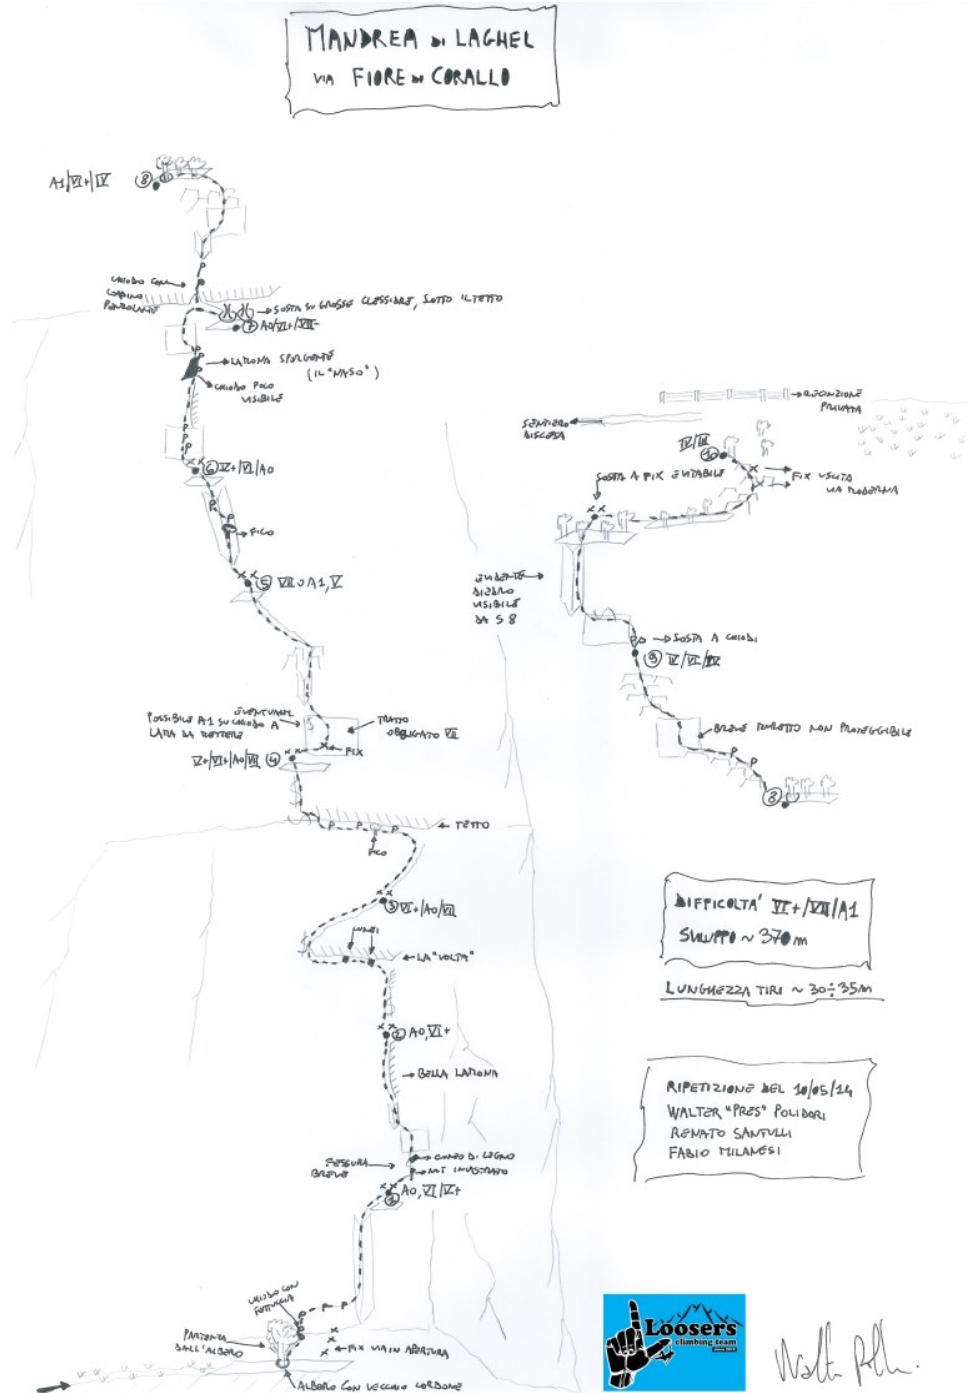 MANDREA DI LAGHEL
VIA FIORE DI CORALLO
A1/VI+/IV 8
CHIODO CON
CORDINO
PENZOLANTE
SOSTA SU GROSSE CLESSIDRE, SOTTO IL TETTO
7 A0/VI+/VII-
LAMONA SPORGENTE
(IL "NASO")
CHIODO POCO
VISIBILE
6 V+/VI/A0
FICO
5 VII O A1, V
EVENTUALE
POSSIBILE A1 SU CHIODO A
LAMA DA METTERE
TRATTO
OBBLIGATO VII
FIX
V+/VI+/A0/VII 4
TETTO
FICO
3 VI+/A0/VII
CUNEI
LA "VOLTA"
2 A0, VI+
BELLA LAMONA
FESSURA
BREVE
CUNEO DI LEGNO
NUT INCASTRATO
1 A0, VI/V+
CHIODO CON
FETTUCCIA
PARTENZA
DALL'ALBERO
FIX VIA IN APERTURA
ALBERO CON VECCHIO CORDONE
RECINZIONE
PRIVATA
SENTIERO
DISCESA
IV/III
10
SOSTA A FIX EVITABILE
FIX USCITA
VIA MODERNA
EVIDENTE
DIEDRO
VISIBILE
DA S8
SOSTA A CHIODI
9 IV/VI/IV
BREVE MURETTO NON PROTEGGIBILE
8
DIFFICOLTA' VI+/VII/A1
SVILUPPO ~ 370 m
LUNGHEZZA TIRI ~ 30÷35m
RIPETIZIONE DEL 10/05/14
WALTER "PRES" POLIDORI
RENATO SANTULLI
FABIO MILANESI
Loosers
climbing team